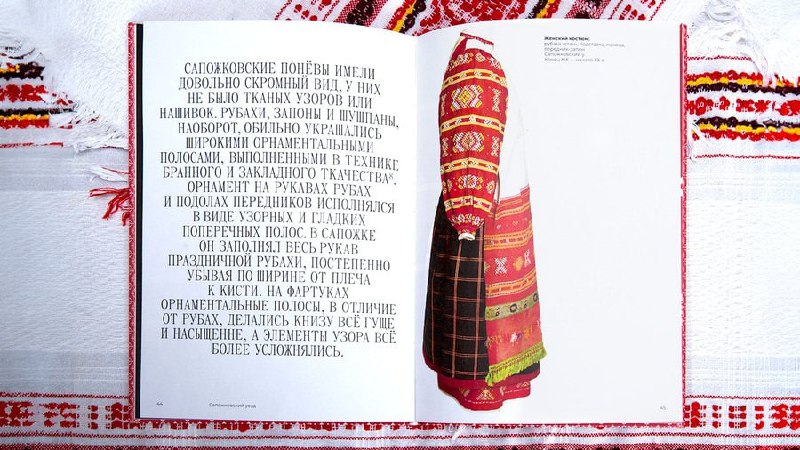 САПОЖКОВСКИЕ ПОНЁВЫ ИМЕЛИ
ДОВОЛЬНО СКРОМНЫЙ ВИД, У НИХ
НЕ БЫЛО ТКАНЫХ УЗОРОВ ИЛИ
НАШИВОК. РУБАХИ, ЗАПОНЫ И ШУШПАНЫ,
НАОБОРОТ, ОБИЛЬНО УКРАШАЛИСЬ
ШИРОКИМИ ОРНАМЕНТАЛЬНЫМИ
ПОЛОСАМИ, ВЫПОЛНЕННЫМИ В ТЕХНИКЕ
БРАННОГО И ЗАКЛАДНОГО ТКАЧЕСТВА*.
ОРНАМЕНТ НА РУКАВАХ РУБАХ
И ПОДОЛАХ ПЕРЕДНИКОВ ИСПОЛНЯЛСЯ
В ВИДЕ УЗОРНЫХ И ГЛАДКИХ
ПОПЕРЕЧНЫХ ПОЛОС. В САПОЖКЕ
ОН ЗАПОЛНЯЛ ВЕСЬ РУКАВ
ПРАЗДНИЧНОЙ РУБАХИ, ПОСТЕПЕННО
УБЫВАЯ ПО ШИРИНЕ ОТ ПЛЕЧА
К КИСТИ. НА ФАРТУКАХ
ОРНАМЕНТАЛЬНЫЕ ПОЛОСЫ, В ОТЛИЧИЕ
ОТ РУБАХ, ДЕЛАЛИСЬ КНИЗУ ВСЁ ГУЩЕ
И НАСЫЩЕННЕ, А ЭЛЕМЕНТЫ УЗОРА ВСЁ
БОЛЕЕ УСЛОЖНЯЛИСЬ.
44
Сапожковский уезд
Женский костюм:
рубаха, понёва,
передник-запон
Сапожковский у.
45